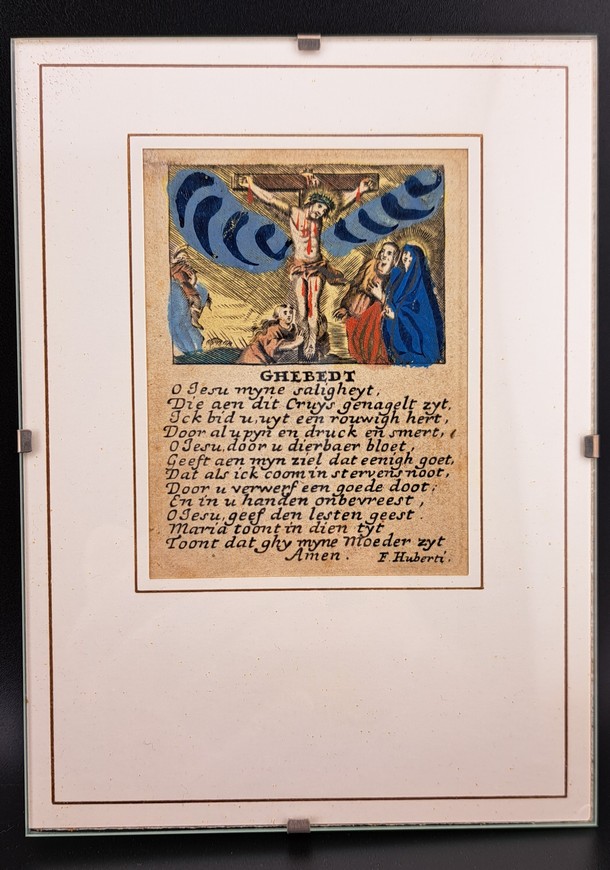 GHEBEDT
O Iesu myne saligheyt,
Die aen dit Cruys genagelt zyt,
Ick bid u, uyt een rouwigh hert,
Door al u pyn en druck en smert,
O Iesu, door u dierbaer bloet,
Geeft aen myn ziel dat eenigh goet,
Dat als ick coom in stervens noot,
Door u verwerf een goede doot:
En in u handen onbevreest,
O Iesu, geef den lesten geest.
Maria toont in dien tyt
Toont dat ghy myne Moeder zyt
Amen. F. Huberti.